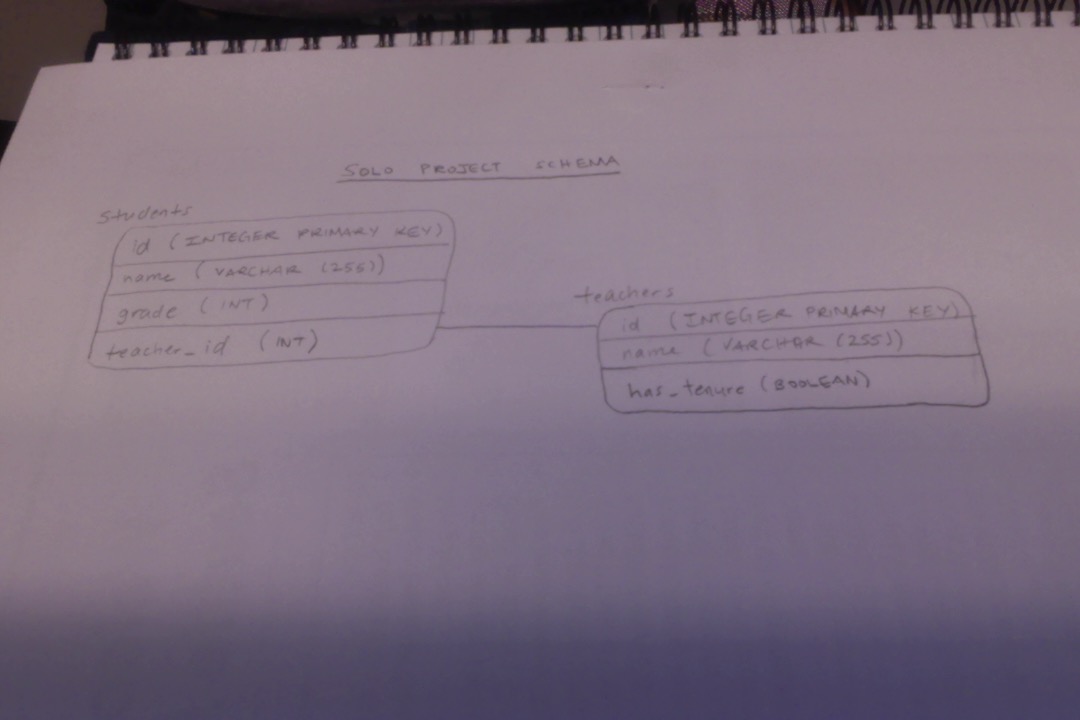 SOLO PROJECT SCHEMA
students
id (INTEGER PRIMARY KEY)
name (VARCHAR (255))
grade (INT)
teacher_id (INT)
teachers
id (INTEGER PRIMARY KEY)
name (VARCHAR (255))
has_tenure (BOOLEAN)